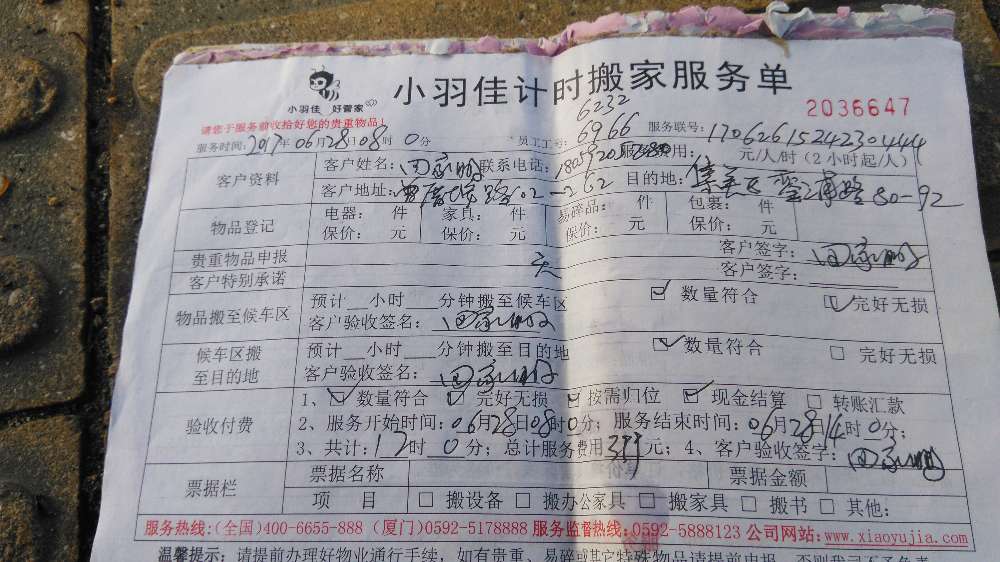 小羽佳 好管家
小羽佳计时搬家服务单
2036647
请您于服务前收给好您的贵重物品!
6232
6966
服务时间:2017年06月28日08时0分 员工工号: 服务联号:17062615242230444
客户资料
客户姓名: 联系电话: 服务费用: 元/人/时(2小时起/人)
客户地址: 目的地: 80-92
物品登记
电器: 件 家具: 件 易碎品: 件 包裹: 件
保价: 元 保价: 元 保价: 元 保价: 元
贵重物品申报 无 客户签字:
客户特别承诺 客户签字:
物品搬至候车区
预计__小时___分钟搬至候车区 ☑ 数量符合 ☑ 完好无损
客户验收签名:
候车区搬
至目的地
预计__小时___分钟搬至目的地 ☑ 数量符合 □ 完好无损
客户验收签名:
验收付费
1、☑ 数量符合 ☑ 完好无损 ☑ 按需归位 ☑ 现金结算 □ 转账汇款
2、服务开始时间:06月28日08时0分; 服务结束时间:06月28日14时0分;
3、共计: 时0分; 总计服务费用 元; 4、客户验收签字:
票据栏
票据名称 票据金额
项 目 □ 搬设备 □ 搬办公家具 □ 搬家具 □ 搬书 □ 其他:
服务热线:(全国)400-6655-888 (厦门)0592-5178888 服务监督热线:0592-5888123 公司网站:www.xiaoyujia.com
温馨提示: 请提前办理好物业通行手续, 如有贵重、易碎或其它特殊物品请提前申报, 否则我司不予负责